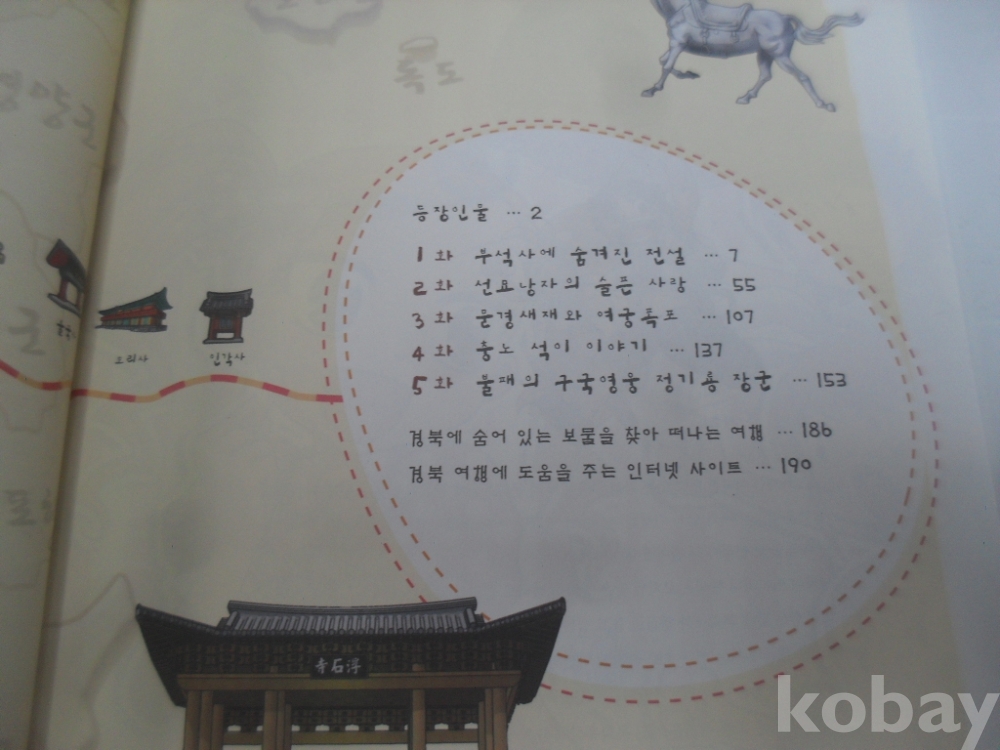 독도
영양군
등장인물 ··· 2
1화 부석사에 숨겨진 전설 ··· 7
2화 선묘낭자의 슬픈 사랑 ··· 55
3화 문경새재와 여궁폭포 ··· 107
4화 충노 석이 이야기 ··· 137
5화 불패의 구국영웅 정기룡 장군 ··· 153
경북에 숨어 있는 보물을 찾아 떠나는 여행 ··· 186
경북 여행에 도움을 주는 인터넷 사이트 ··· 190
인각사
군
浮石寺
kobay